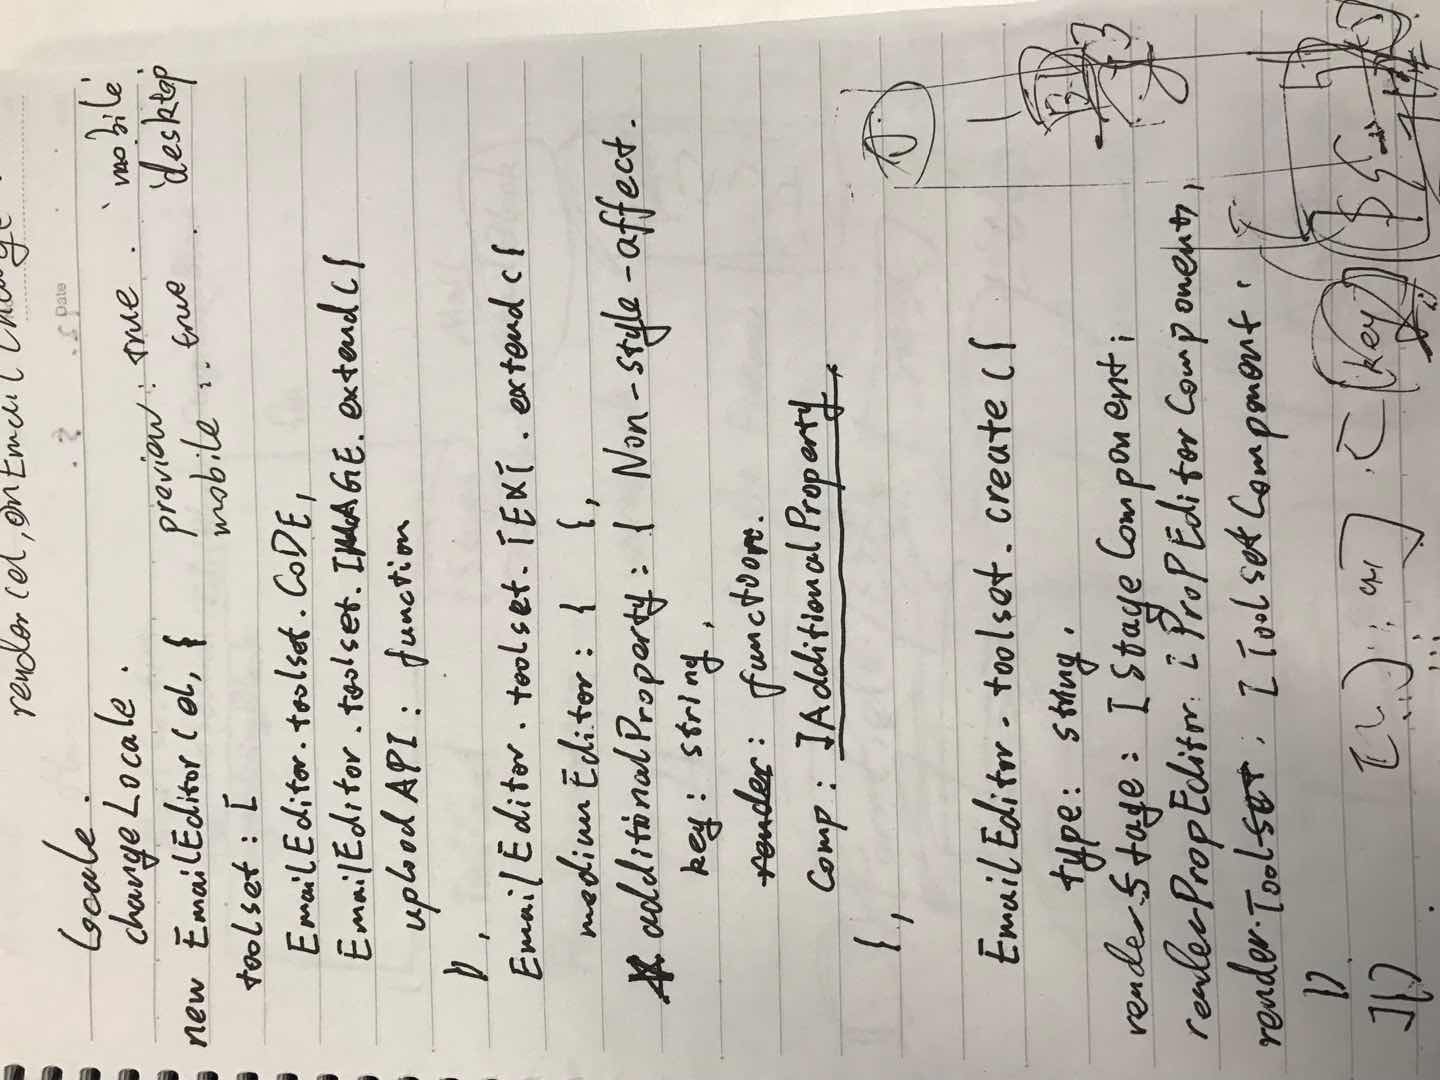 render(el, onEmailChange
Date
Locale.
changeLocale.
preview: true. 'mobile'
mobile: true. 'desktop
new EmailEditor(el, {
toolset: [
EmailEditor.toolset.CODE,
EmailEditor.toolset.IMAGE.extend({
uploadAPI: function
}),
EmailEditor.toolset.TEXT.extend({
mediumEditor: { },
additionalProperty: { Non-style-affect.
key: string,
render: function.
Comp: IAdditionalProperty
},
EmailEditor.toolset.create({
type: string.
renderStage: IStageComponent;
renderPropEditor: IPropEditorComponent,
render Toolset: IToolsetComponent.
})
](})
key